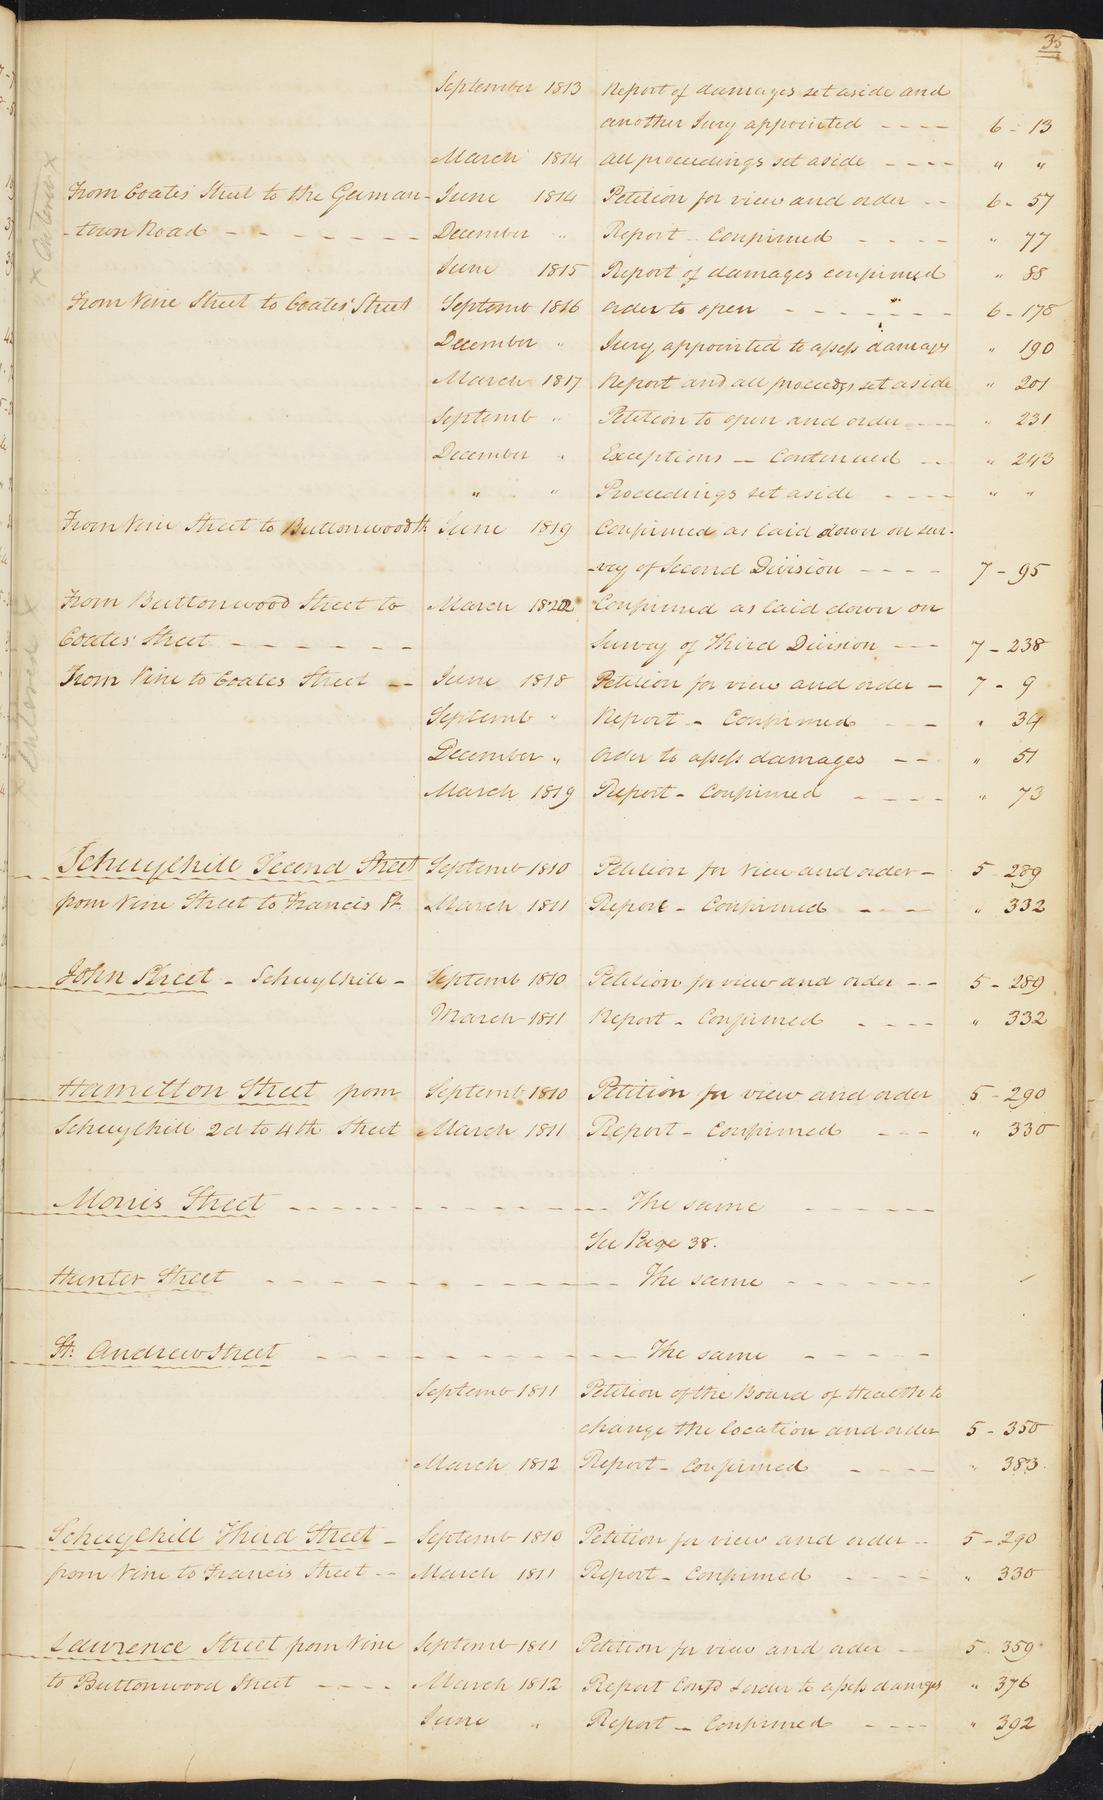 35
September 1813 Report of damages set aside and
another Jury appointed - - - - 6 - 13
March 1814 all proceedings set aside - - - - " "
From Coates' Street to the German- June 1814 Petition for view and order - - 6 - 57
-town Road - - - - - - - December " Report - Confirmed - - - - " 77
June 1815 Report of damages confirmed " 88
From Vine Street to Coates' Street Septemb 1816 Order to open - - - - - - - 6 - 178
December " Jury appointed to assess damages " 190
March 1817 Report and all proceedgs set aside " 201
Septemb " Petition to open and order - - - " 231
December " Exceptions - Continued - - " 243
" " Proceedings set aside - - - - " "
From Vine Street to Buttonwood St. June 1819 Confirmed as laid down on sur-
-vey of Second Division - - - - 7 - 95
From Buttonwood Street to March 1822 Confirmed as laid down on
Coates' Street - - - - - - Survey of Third Division - - - 7 - 238
From Vine to Coates Street - - June 1818 Petition for view and order - 7 - 9
Septemb " Report - Confirmed - - " 34
December " Order to assess damages - - " 51
March 1819 Report - Confirmed - - - - " 73
Schuylkill Second Street Septemb 1810 Petition for view and order - 5 - 289
from Vine Street to Francis St. March 1811 Report - Confirmed - - - " 332
John Street - Schuylkill - Septemb 1810 Petition for view and order - - 5 - 289
March 1811 Report - Confirmed - - - - " 332
Hamilton Street from Septemb 1810 Petition for view and order 5 - 290
Schuylkill 2d to 4th Street March 1811 Report - Confirmed - - - " 330
Morris Street - - - - - - - - - - - - The same - - - - - -
See Page 38.
Hunter Street - - - - - - - - - - - - The same - - - - - -
St. Andrew Street - - - - - - - - - - - The same - - - - -
Septemb 1811 Petition of the Board of Health to
change the location and order 5 - 350
March 1812 Report - Confirmed - - - - " 383
Schuylkill Third Street - Septemb 1810 Petition for view and order - - 5 - 290
from Vine to Francis Street - - March 1811 Report - Confirmed - - - - " 330
Lawrence Street from Vine Septemb 1811 Petition for view and order - - 5 359
to Buttonwood Street - - - - March 1812 Report Confd & order to assess damages " 376
June " Report - Confirmed - - - - " 392
x Entered x